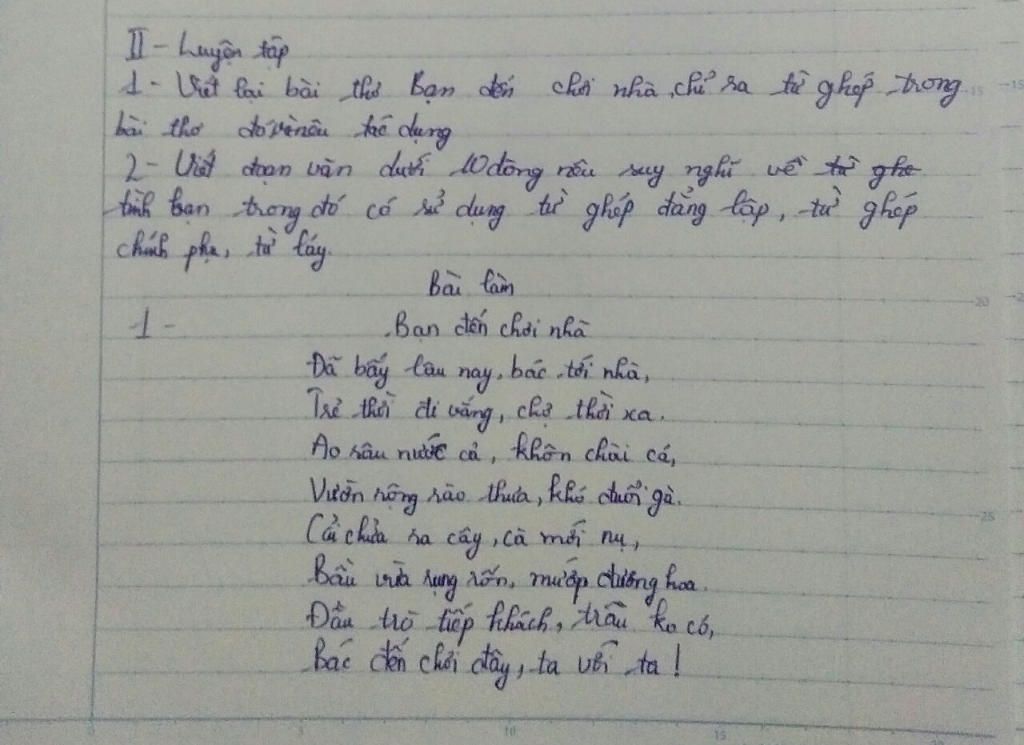 II - Luyện tập
1 - Viết lại bài thơ Bạn đến chơi nhà, chỉ ra từ ghép trong
bài thơ đó và nêu tác dụng
2 - Viết đoạn văn dưới 10 dòng nêu suy nghĩ về từ ghe
tình bạn trong đó có sử dụng từ ghép đẳng lập, từ ghép
chính phụ, từ láy.
Bài làm
1 - Bạn đến chơi nhà
Đã bấy lâu nay, bác tới nhà,
Trẻ thời đi vắng, chợ thời xa.
Ao sâu nước cả, khôn chài cá,
Vườn rộng rào thưa, khó đuổi gà.
Cải chửa ra cây, cà mới nụ,
Bầu vừa rụng rốn, mướp đương hoa.
Đầu trò tiếp khách, trầu ko có,
Bác đến chơi đây, ta với ta !
15
20
25
5
10
15